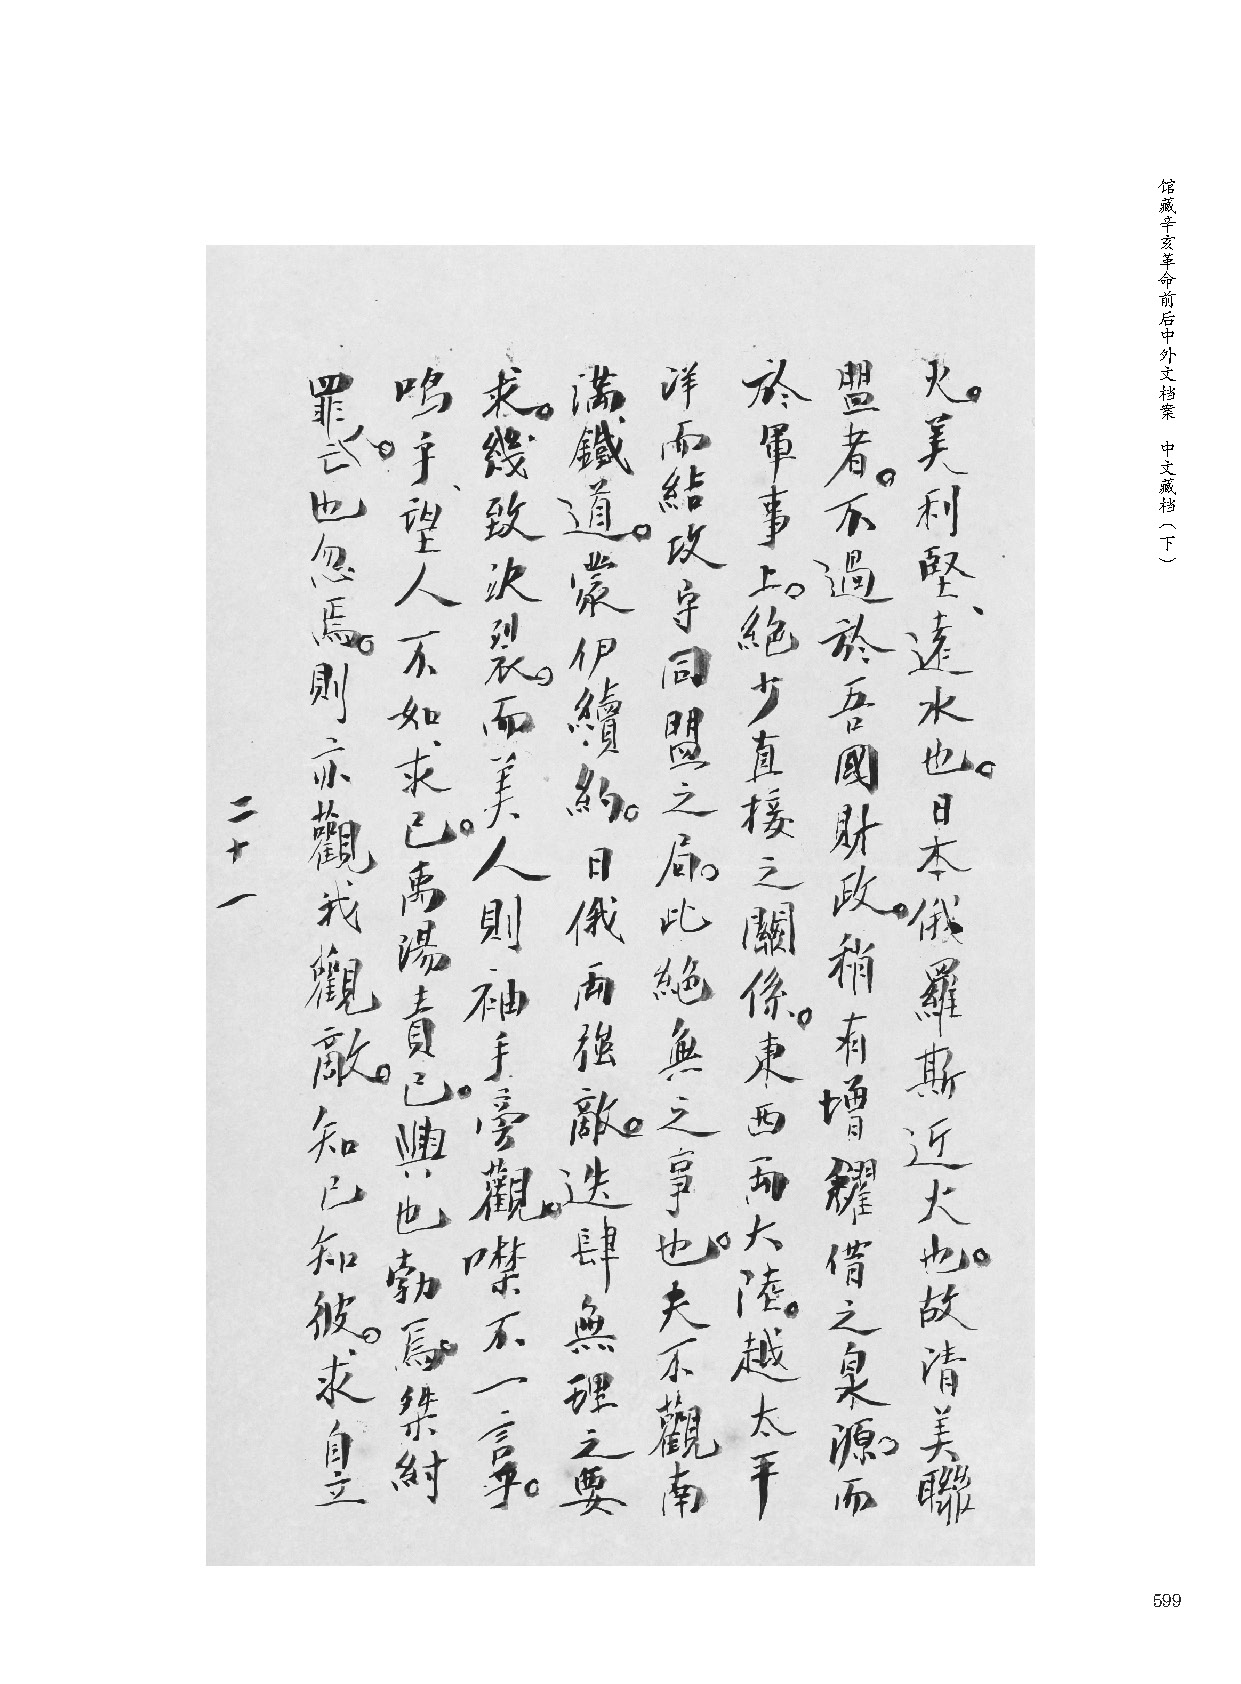 馆藏辛亥革命前后中外文档案 中文藏档（下）
火。美利堅、遠水也。日本俄羅斯近火也。故清美聯
盟者。不過於吾國財政。稍有增糴借之泉源。而
於軍事上。絕少直接之關係。東西兩大陸。越太平
洋而結攻守同盟之局。此絕無之事也。夫不觀南
滿鐵道。蒙伊續約。日俄兩强敵。迭肆無理之要
求。幾致決裂。而美人則袖手旁觀。噤不一言乎。
嗚乎、望人不如求己。禹湯責己。興也勃焉。桀紂
罪人。亡也忽焉。則亦觀我觀敵。知己知彼。求自立
二十一
599